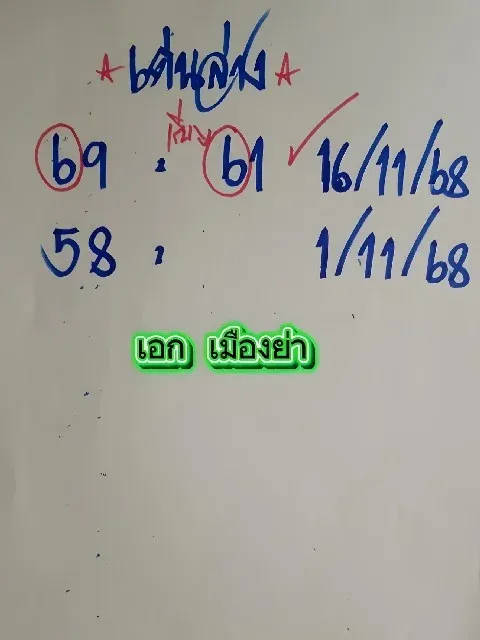 ★เด่นล่าง★
เน้น
69 , 61 ✓ 16/11/68
58 , 1/11/68
เอก เมืองย่า